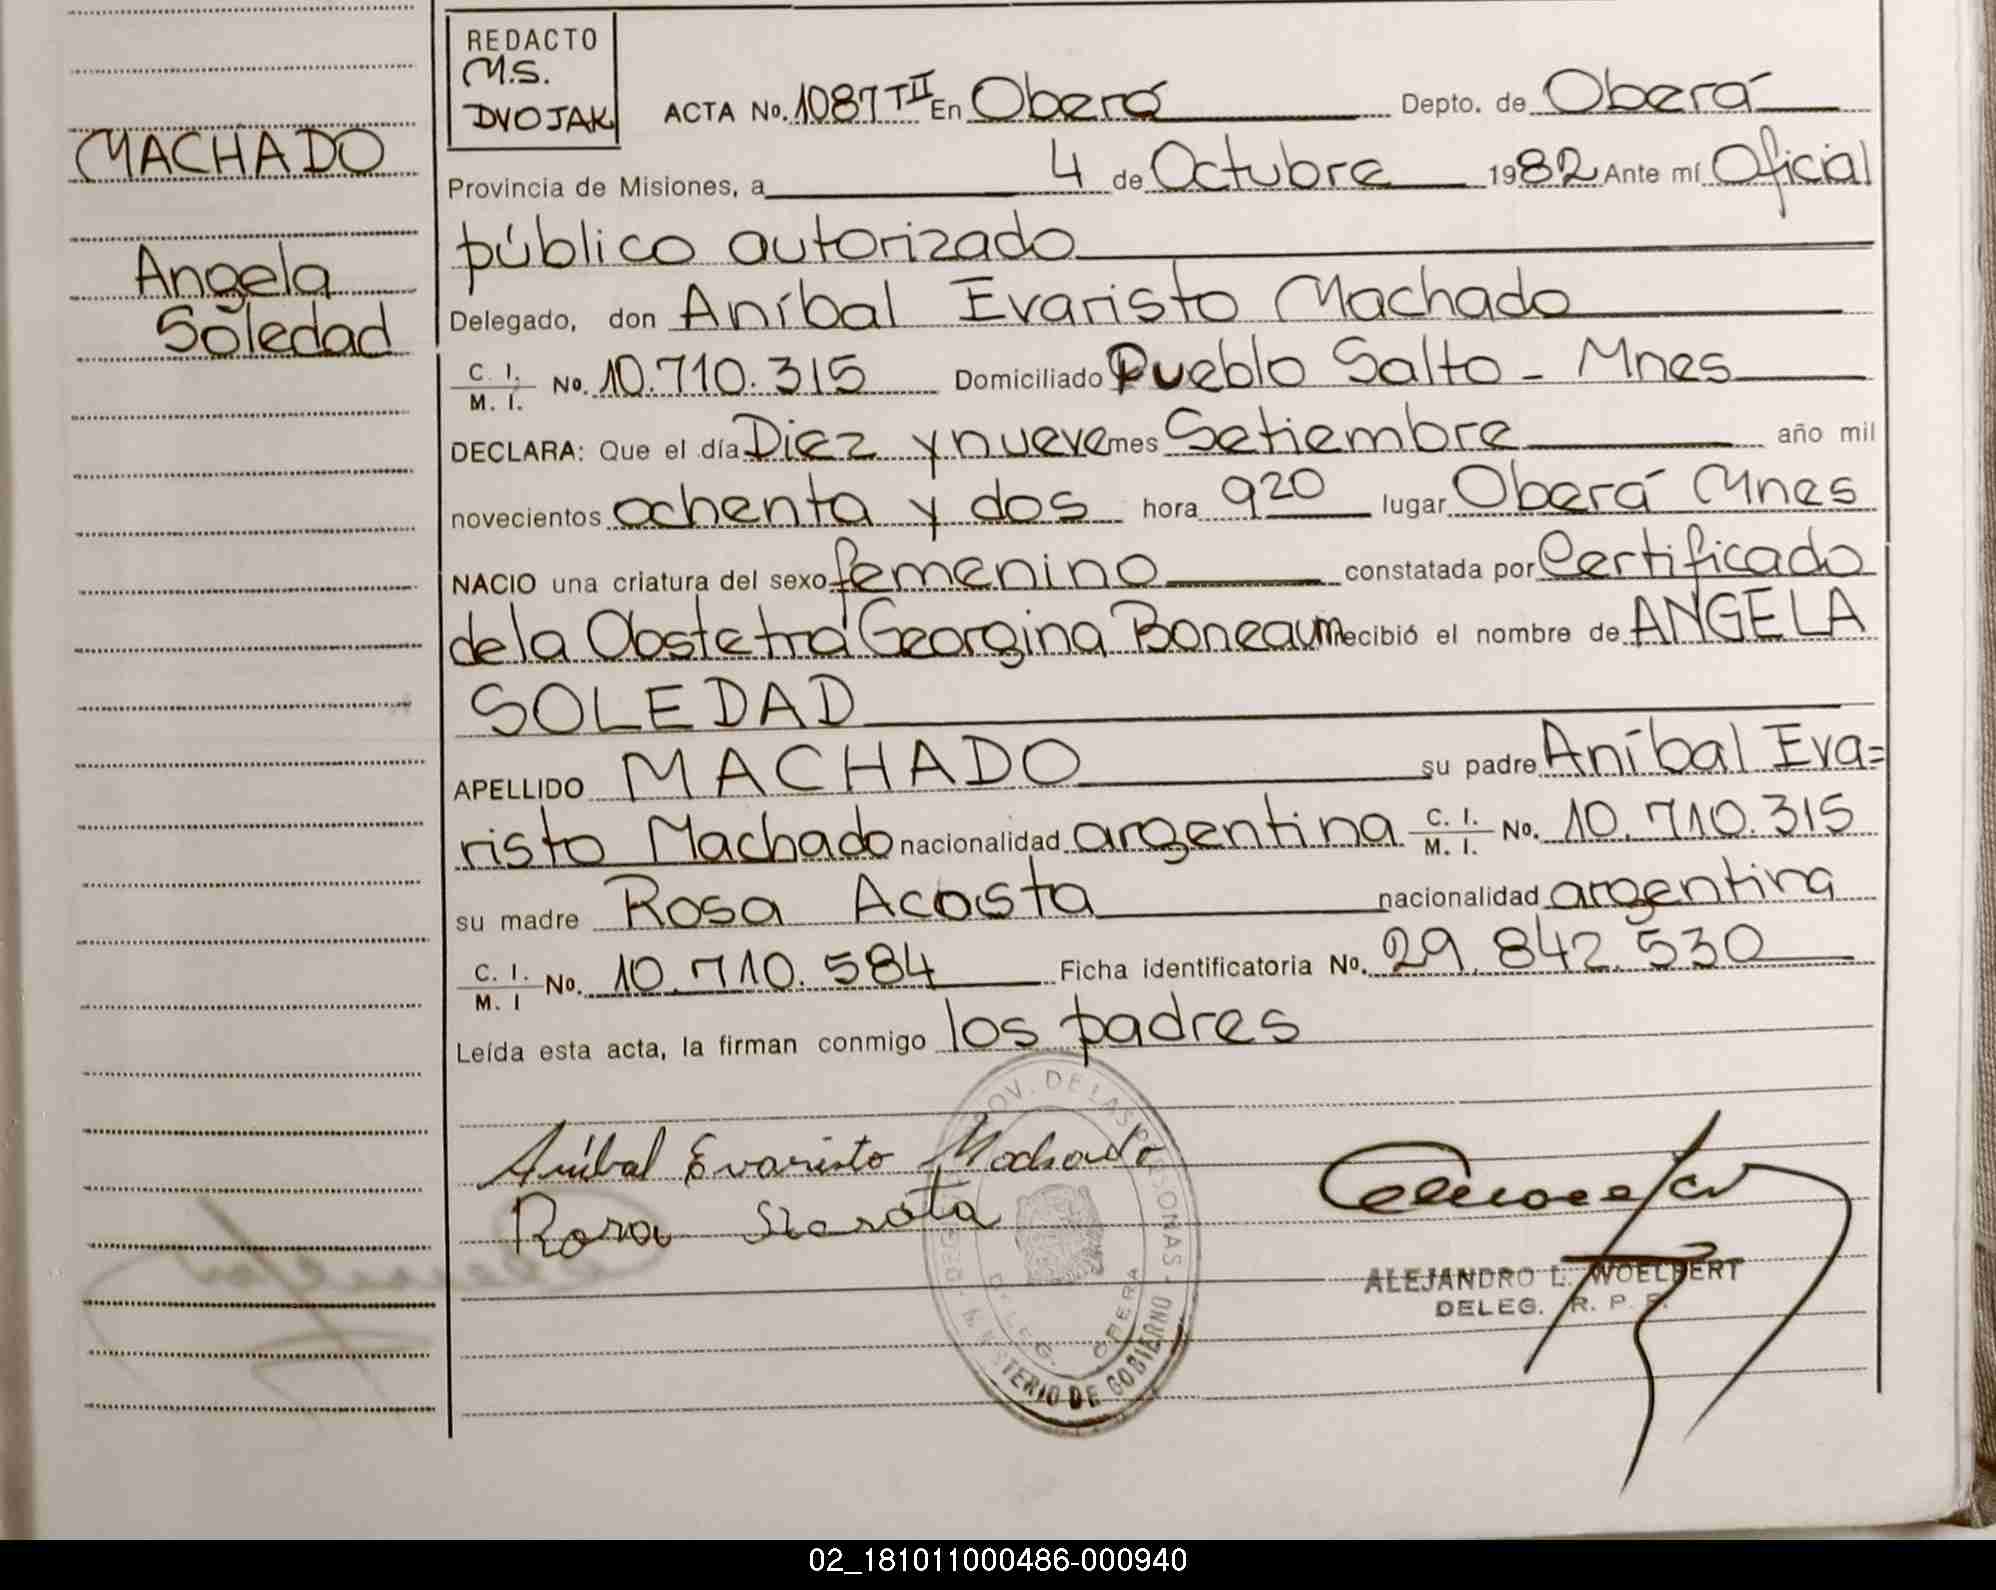 REDACTO
M.S.
DVOJAK
MACHADO
Angela
Soledad
ACTA No. 1087 TII En Oberá Depto. de Oberá
Provincia de Misiones, a 4 de Octubre 1982 Ante mí Oficial
público autorizado
Delegado, don Aníbal Evaristo Machado
C. I. / M. I. No. 10.710.315 Domiciliado Pueblo Salto - Mnes
DECLARA: Que el día Diez y nueve mes Setiembre año mil
novecientos ochenta y dos hora 920 lugar Oberá Mnes
NACIO una criatura del sexo femenino constatada por Certificado
de la Obstetra Georgina Boneaum recibió el nombre de ANGELA
SOLEDAD
APELLIDO MACHADO su padre Aníbal Eva=
risto Machado nacionalidad argentina C. I. / M. I. No. 10.710.315
su madre Rosa Acosta nacionalidad argentina
C. I. / M. I No. 10.710.584 Ficha identificatoria No. 29.842.530
Leída esta acta, la firman conmigo los padres
Aníbal Evaristo Machado
Rosa
PROV. DE LAS PERSONAS - MINISTERIO DE GOBIERNO
DELEG. OBERA
ALEJANDRO L. WOELFERT
DELEG. R. P. P.
02_181011000486-000940